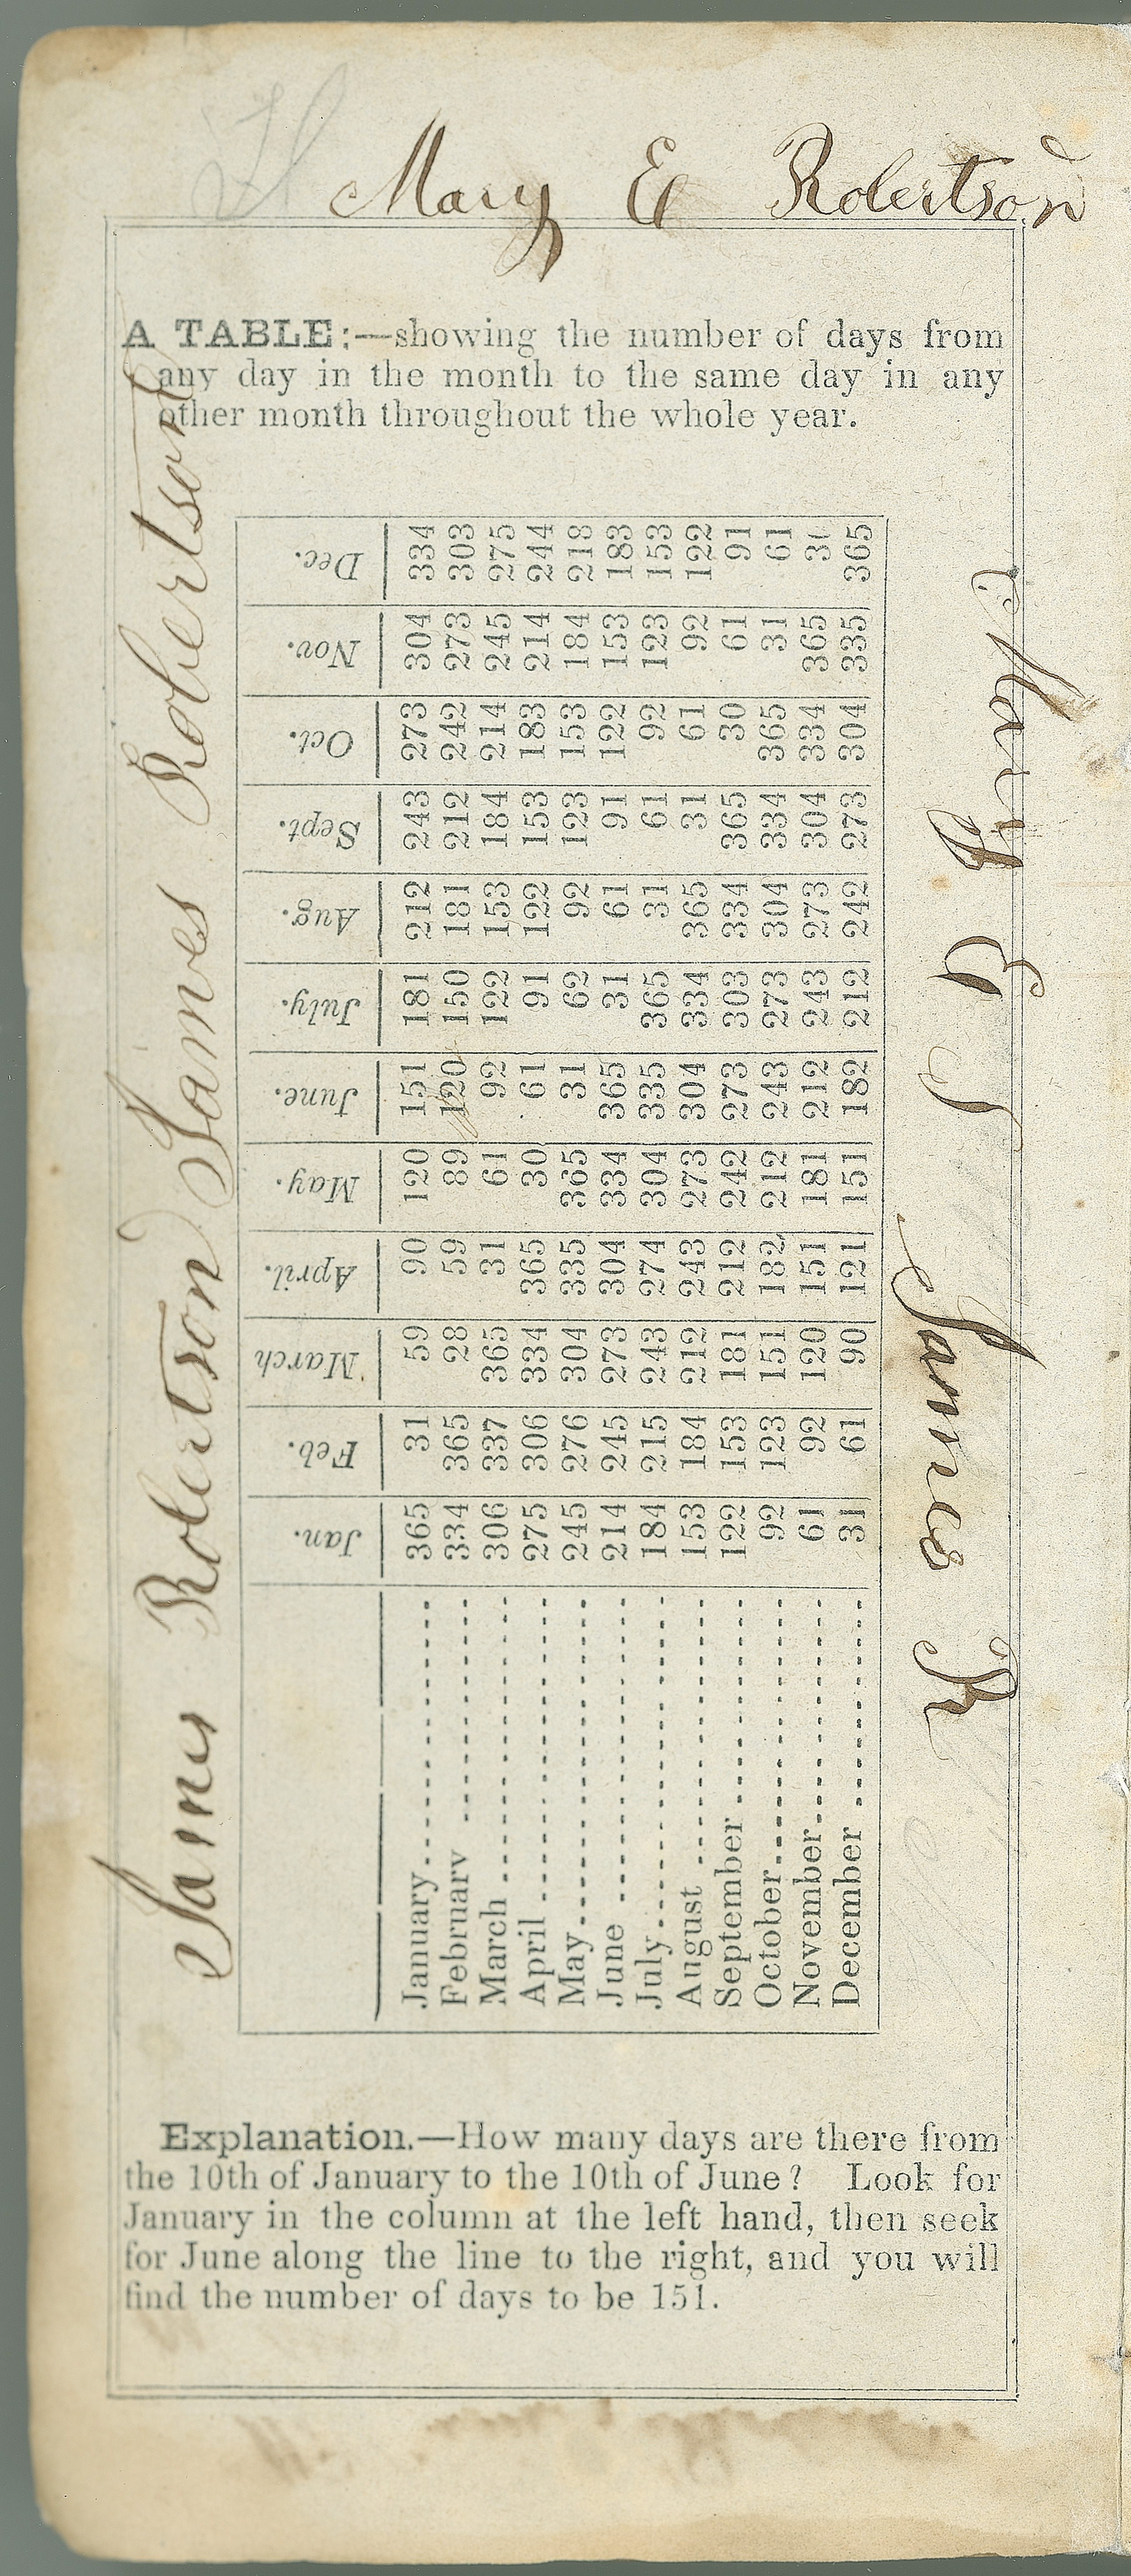 Mary E Robertson
A TABLE:—showing the number of days from
any day in the month to the same day in any
other month throughout the whole year.
James Robertson James Robertson
Jan. Feb. March April. May. June. July. Aug. Sept. Oct. Nov. Dec.
January 365 31 59 90 120 151 181 212 243 273 304 334
February 334 365 28 59 89 120 150 181 212 242 273 303
March 306 337 365 31 61 92 122 153 184 214 245 275
April 275 306 334 365 30 61 91 122 153 183 214 244
May 245 276 304 335 365 31 62 92 123 153 184 218
June 214 245 273 304 334 365 31 61 91 122 153 183
July 184 215 243 274 304 335 365 31 61 92 123 153
August 153 184 212 243 273 304 334 365 31 61 92 122
September 122 153 181 212 242 273 303 334 365 30 61 91
October 92 123 151 182 212 243 273 304 334 365 31 61
November 61 92 120 151 181 212 243 273 304 334 365 30
December 31 61 90 121 151 182 212 242 273 304 335 365
Mary E
James R
Explanation.—How many days are there from
the 10th of January to the 10th of June? Look for
January in the column at the left hand, then seek
for June along the line to the right, and you will
find the number of days to be 151.